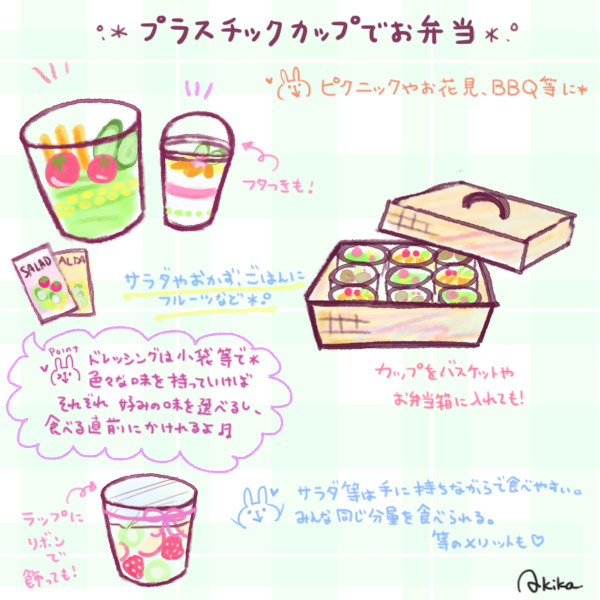 プラスチックカップでお弁当
ピクニックやお花見、BBQ等に*
フタつきも!
SALAD
サラダやおかず、ごはんに
フルーツなど*
Point
ドレッシングは小袋等で*
色々な味を持っていけば
それぞれ好みの味を選べるし、
食べる直前にかけれるよ♬
カップをバスケットや
お弁当箱に入れても!
ラップに
リボン
で
飾っても!
サラダ等は手に持ちながらで食べやすい。
みんな同じ分量を食べられる。
等のメリットも♡
Akika